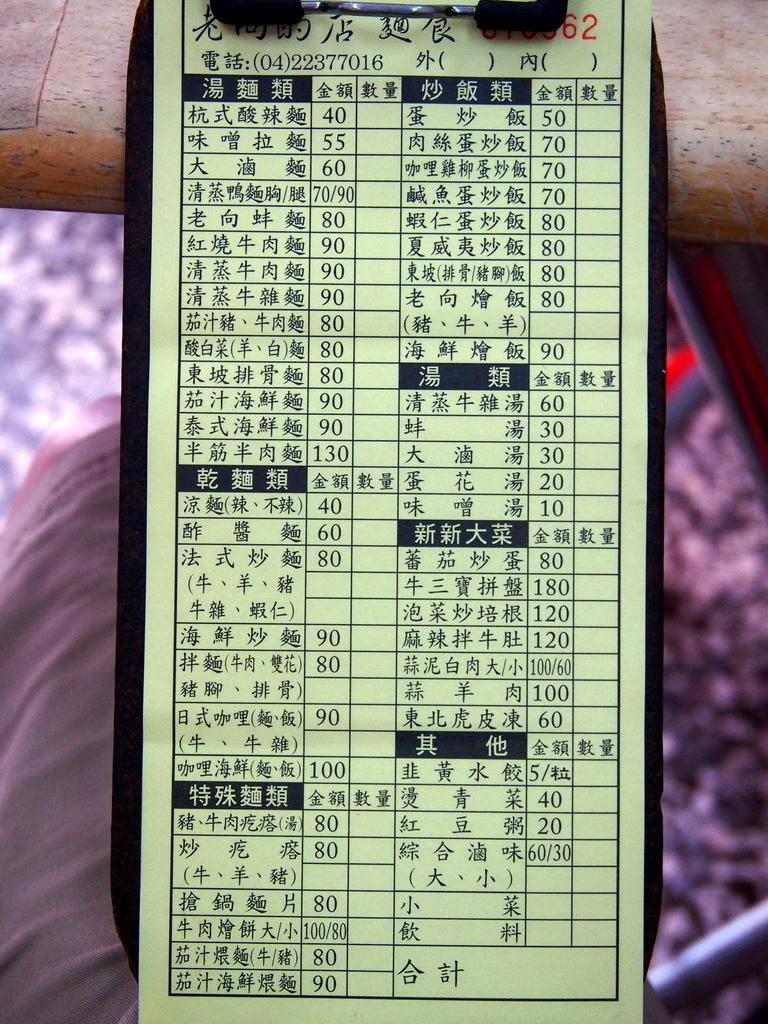 老向的店 麵食
電話:(04)22377016 外( ) 內( )
湯麵類 金額 數量
杭式酸辣麵 40
味噌拉麵 55
大滷麵 60
清蒸鴨麵胸/腿 70/90
老向蚌麵 80
紅燒牛肉麵 90
清蒸牛肉麵 90
清蒸牛雜麵 90
茄汁豬、牛肉麵 80
酸白菜(羊、白)麵 80
東坡排骨麵 80
茄汁海鮮麵 90
泰式海鮮麵 90
半筋半肉麵 130
乾麵類 金額 數量
涼麵(辣、不辣) 40
酢醬麵 60
法式炒麵 80
(牛、羊、豬
牛雜、蝦仁)
海鮮炒麵 90
拌麵(牛肉、雙花) 80
豬腳、排骨)
日式咖哩(麵、飯) 90
(牛、牛雜)
咖哩海鮮(麵、飯) 100
特殊麵類 金額 數量
豬、牛肉疙瘩(湯) 80
炒疙瘩 80
(牛、羊、豬)
搶鍋麵片 80
牛肉燴餅大/小 100/80
茄汁煨麵(牛/豬) 80
茄汁海鮮煨麵 90
炒飯類 金額 數量
蛋炒飯 50
肉絲蛋炒飯 70
咖哩雞柳蛋炒飯 70
鹹魚蛋炒飯 70
蝦仁蛋炒飯 80
夏威夷炒飯 80
東坡(排骨/豬腳)飯 80
老向燴飯 80
(豬、牛、羊)
海鮮燴飯 90
湯類 金額 數量
清蒸牛雜湯 60
蚌湯 30
大滷湯 30
蛋花湯 20
味噌湯 10
新新大菜 金額 數量
蕃茄炒蛋 80
牛三寶拼盤 180
泡菜炒培根 120
麻辣拌牛肚 120
蒜泥白肉大/小 100/60
蒜羊肉 100
東北虎皮凍 60
其他 金額 數量
韭黃水餃 5/粒
燙青菜 40
紅豆粥 20
綜合滷味 60/30
(大、小)
小菜
飲料
合計